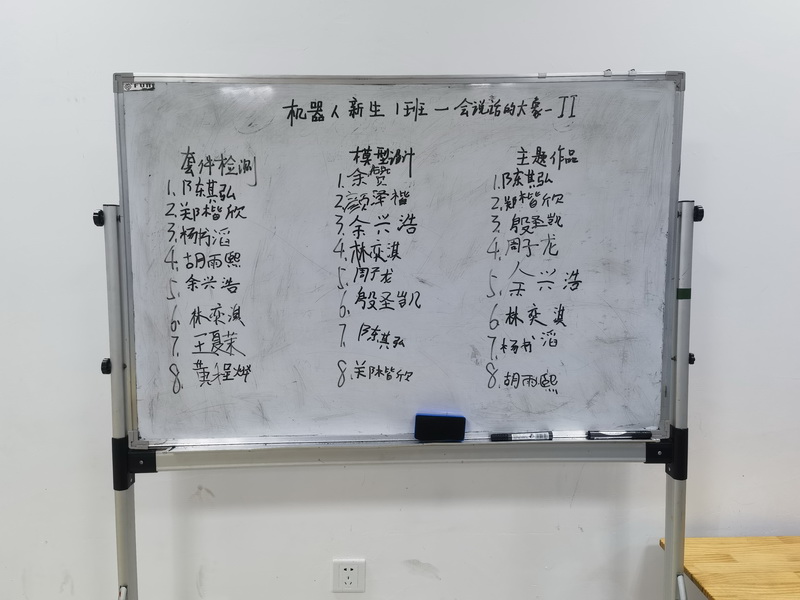 机器人新生1班一会说话的大象-II
套件检测
1.陈其弘
2.郑楷欣
3.杨书滔
4.胡雨熙
5.余兴浩
6.林奕淇
7.王夏茉
8.黄程
模型设计
1.余贤
2.颜泽楷
3.余兴浩
4.林奕淇
5.周子龙
6.殷圣凯
7.陈其弘
8.郑楷欣
主题作品
1.陈其弘
2.郑楷欣
3.殷圣凯
4.周子龙
5.余兴浩
6.林奕淇
7.杨书滔
8.胡雨熙